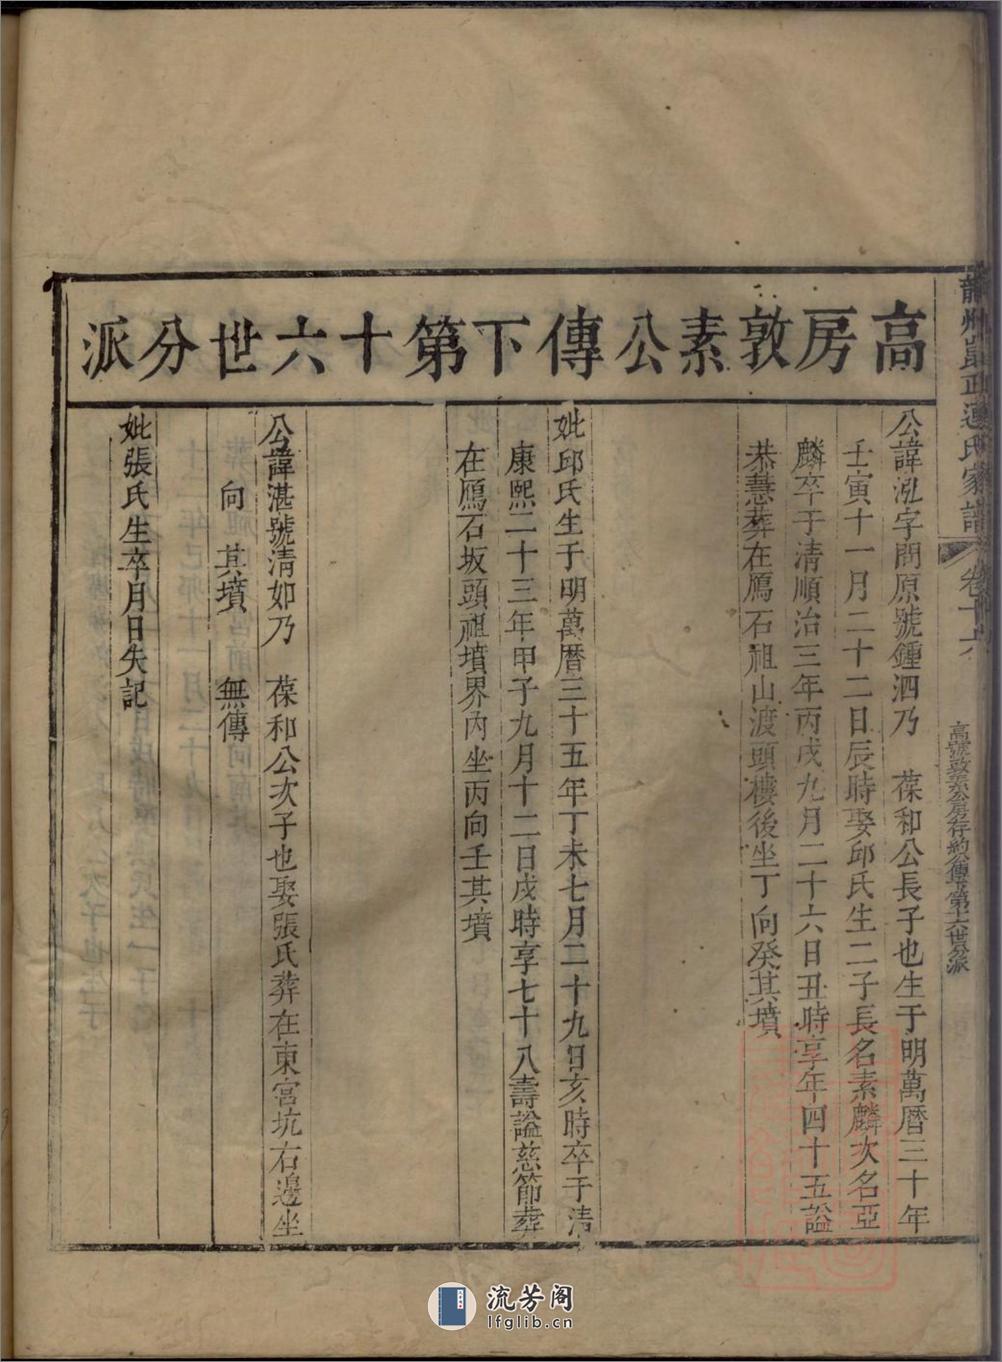 高房敦素公傳下第十六世分派
公諱泓字問原號鍾泗乃 葆和公長子也生于明萬曆三十年
壬寅十一月二十二日辰時娶邱氏生二子長名素麟次名亞
麟卒于清順治三年丙戌九月二十六日丑時享年四十五諡
恭慧葬在鴈石祖山渡頭樓後坐丁向癸其墳
妣邱氏生于明萬曆三十五年丁未七月二十九日亥時卒于清
康熙二十三年甲子九月十二日戌時享七十八壽諡慈節葬
在鴈石坂頭祖墳界內坐丙向壬其墳
公諱湛號清如乃 葆和公次子也娶張氏葬在東宮坑右邊坐
向 其墳 無傳
妣張氏生卒月日失記
正連氏家譜
卷十六
高號敦素公房存約公傳下第十六世分派
流芳阁
lfglib.cn